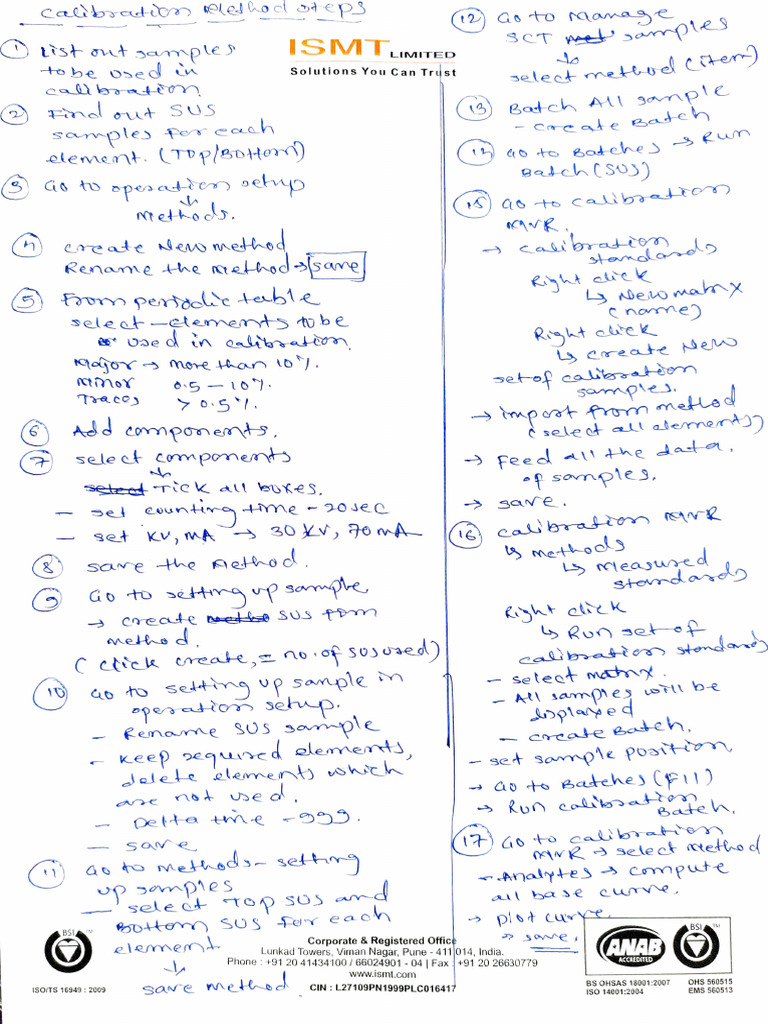 Calibration Method steps
ISMT LIMITED
Solutions You Can Trust
① List out samples
to be used in
calibration.
② Find out SUS
samples for each
element. (TOP/Bottom)
③ Go to operation setup
↳ Methods.
④ create New method
Rename the Method → save
⑤ From periodic table
select - elements to be
used in calibration.
Major → more than 10%.
Minor 0.5 - 10%.
Traces > 0.5%.
⑥ Add components.
⑦ select components
↳ select Tick all boxes.
- set counting time - 20sec
- set KV, MA → 30 KV, 70 mA
⑧ save the Method.
⑨ Go to setting up sample
→ create metho SUS from
method.
(click create, = no. of SUS used)
⑩ Go to setting up sample in
operation setup.
- Rename SUS sample
- Keep required elements,
delete elements which
are not used.
- Delta time - 999.
- save
⑪ Go to Methods - setting
up samples
- select TOP SUS and
Bottom SUS for each
element
↳ save method
⑫ Go to Manage
SCT met samples
↳ select method (item)
⑬ Batch All sample
- create Batch
⑭ Go to Batches → Run
Batch (SUS)
⑮ Go to calibration
MVR.
→ calibration
standards
Right click
↳ New matrix
(name)
Right click
↳ create New
set of calibration
samples.
→ import from method
(select all elements)
→ Feed all the data
of samples.
→ save.
⑯ calibration MVR
↳ methods
↳ Measured
standards
Right click
↳ Run set of
calibration standards
- select matrix.
- All samples will be
displaxed
- create Batch.
- set sample position
→ Go to Batches (F11)
→ Run calibration
Batch.
⑰ Go to calibration
MVR → select Method
- Analytes → compute
all base curve.
→ plot curve.
→ save.
BSI
ISO/TS 16949 : 2009
Corporate & Registered Office
Lunkad Towers, Viman Nagar, Pune - 411 014, India.
Phone : +91 20 41434100 / 66024901 - 04 | Fax : +91 20 26630779
www.ismt.com
CIN : L27109PN1999PLC016417
ANAB
ACCREDITED
BSI
BS OHSAS 18001:2007 OHS 560515
ISO 14001:2004 EMS 560513